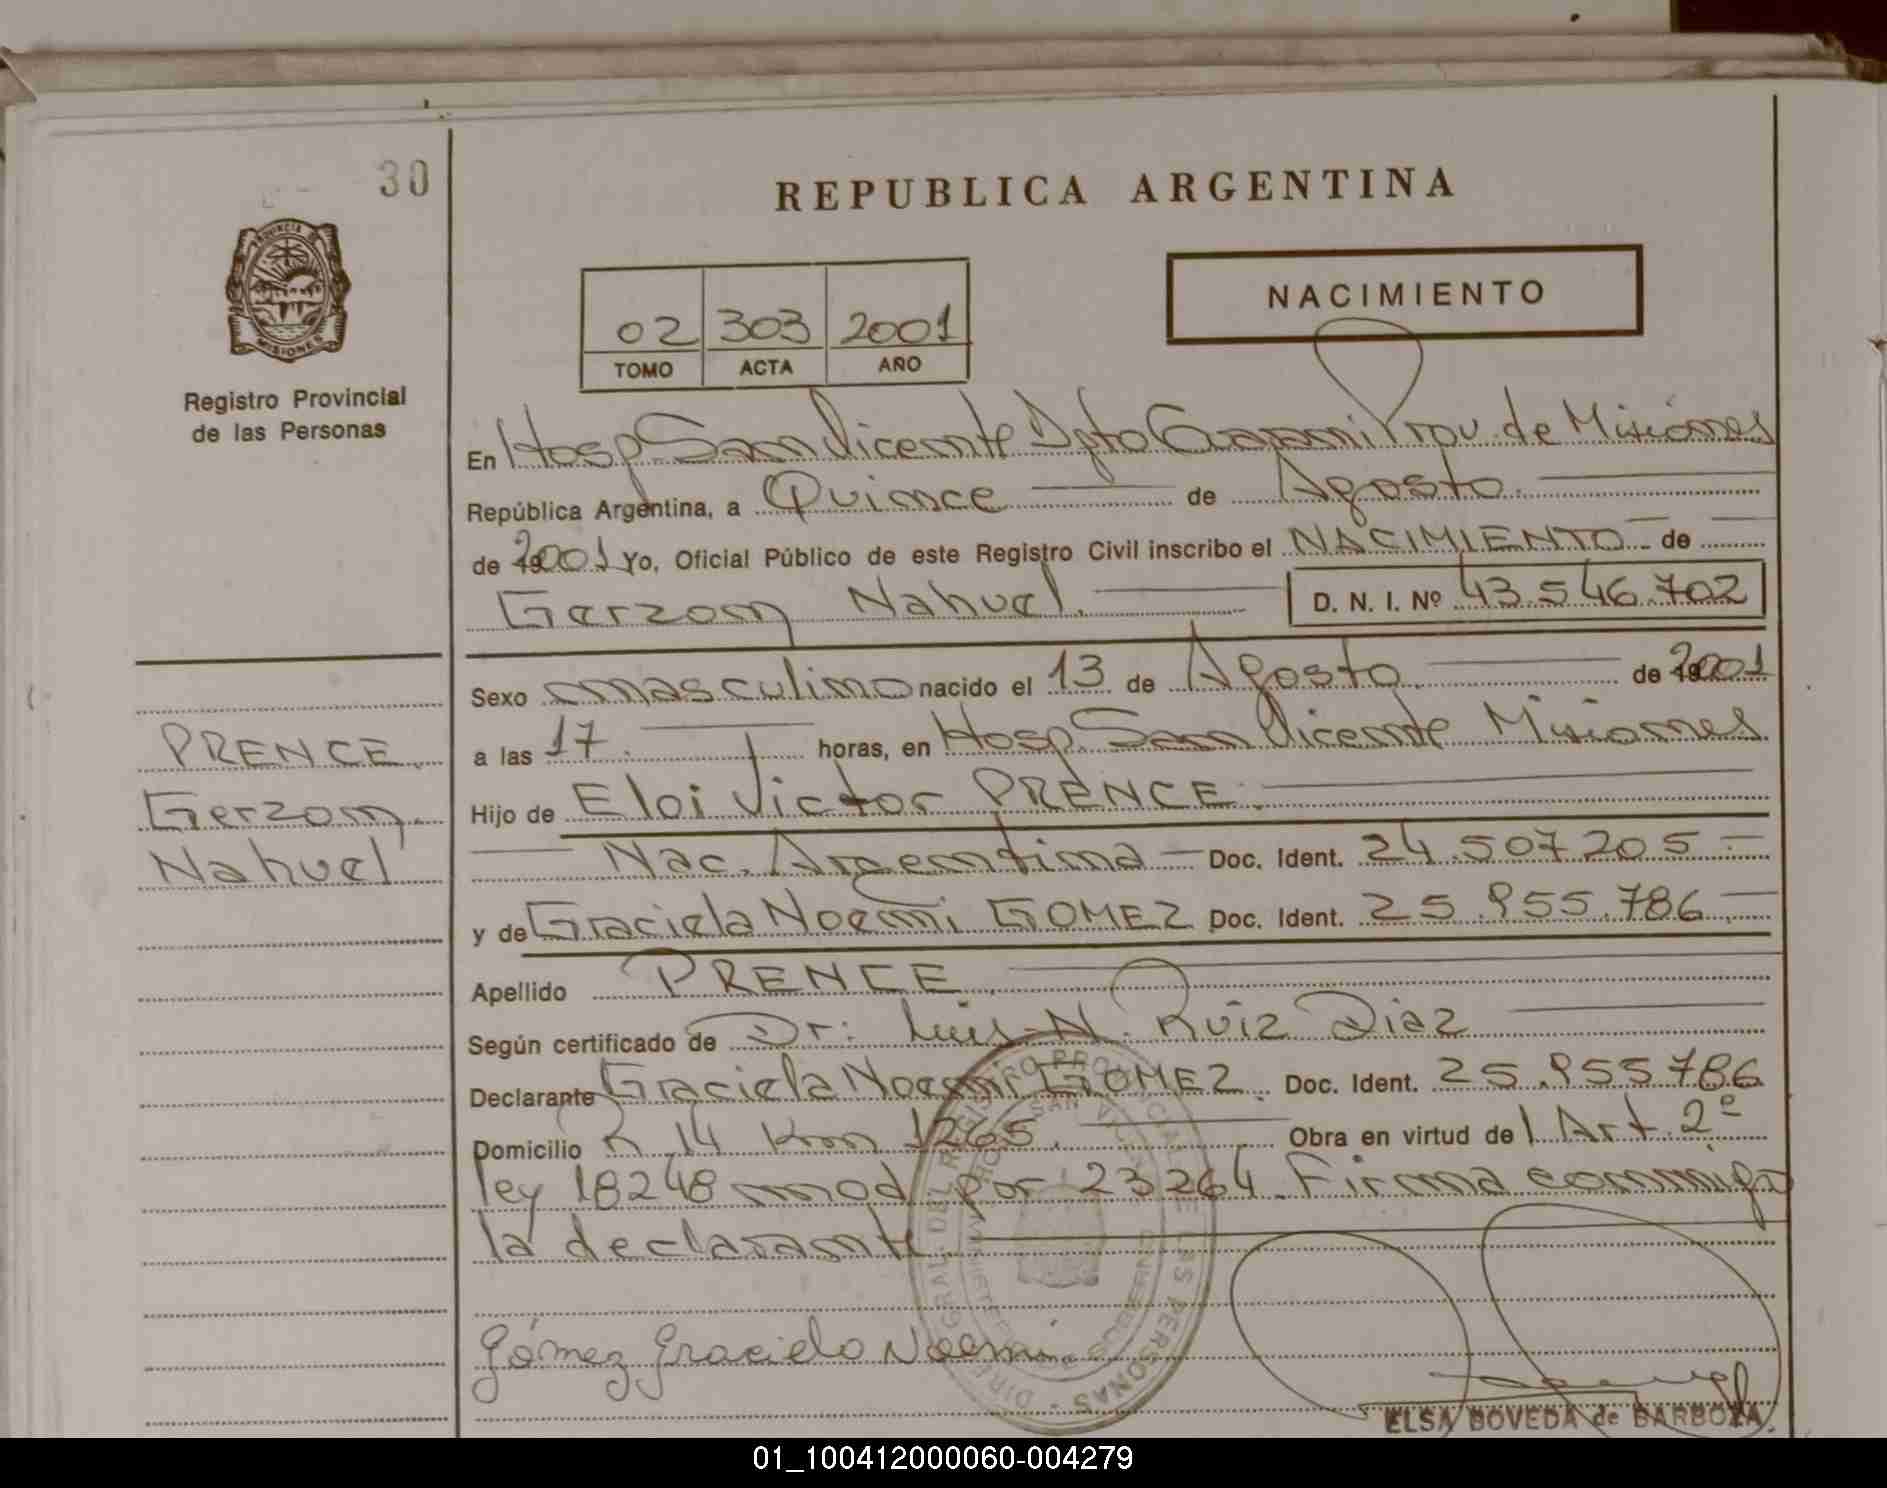 30
REPUBLICA ARGENTINA
PROVINCIA DE
MISIONES
Registro Provincial
de las Personas
NACIMIENTO
02 303 2001
TOMO ACTA AÑO
En Hosp San Vicente Dpto Guarani Prov. de Misiones
República Argentina, a Quince de Agosto
de 2001 Yo, Oficial Público de este Registro Civil inscribo el NACIMIENTO de
Gerzon Nahuel. D. N. I. Nº 43.546.702
Sexo masculino nacido el 13 de Agosto de 2001
a las 17 horas, en Hosp San Vicente Misiones
Hijo de Eloi Victor PRENCE
Nac. Argentina Doc. Ident. 24.507.205
y de Graciela Noemi GOMEZ Doc. Ident. 25.955.786
Apellido PRENCE
Según certificado de Dr: Luis N. Ruiz Diaz
Declarante Graciela Noemi GOMEZ Doc. Ident. 25.955786
Domicilio R 14 Km 1265. Obra en virtud del Art. 2º
ley 18248 mod por 23264. Firma conmigo
la declarante
PRENCE
Gerzon
Nahuel
Gómez Graciela Noemi
ELSA BOVEDA de BARBOZA
01_100412000060-004279